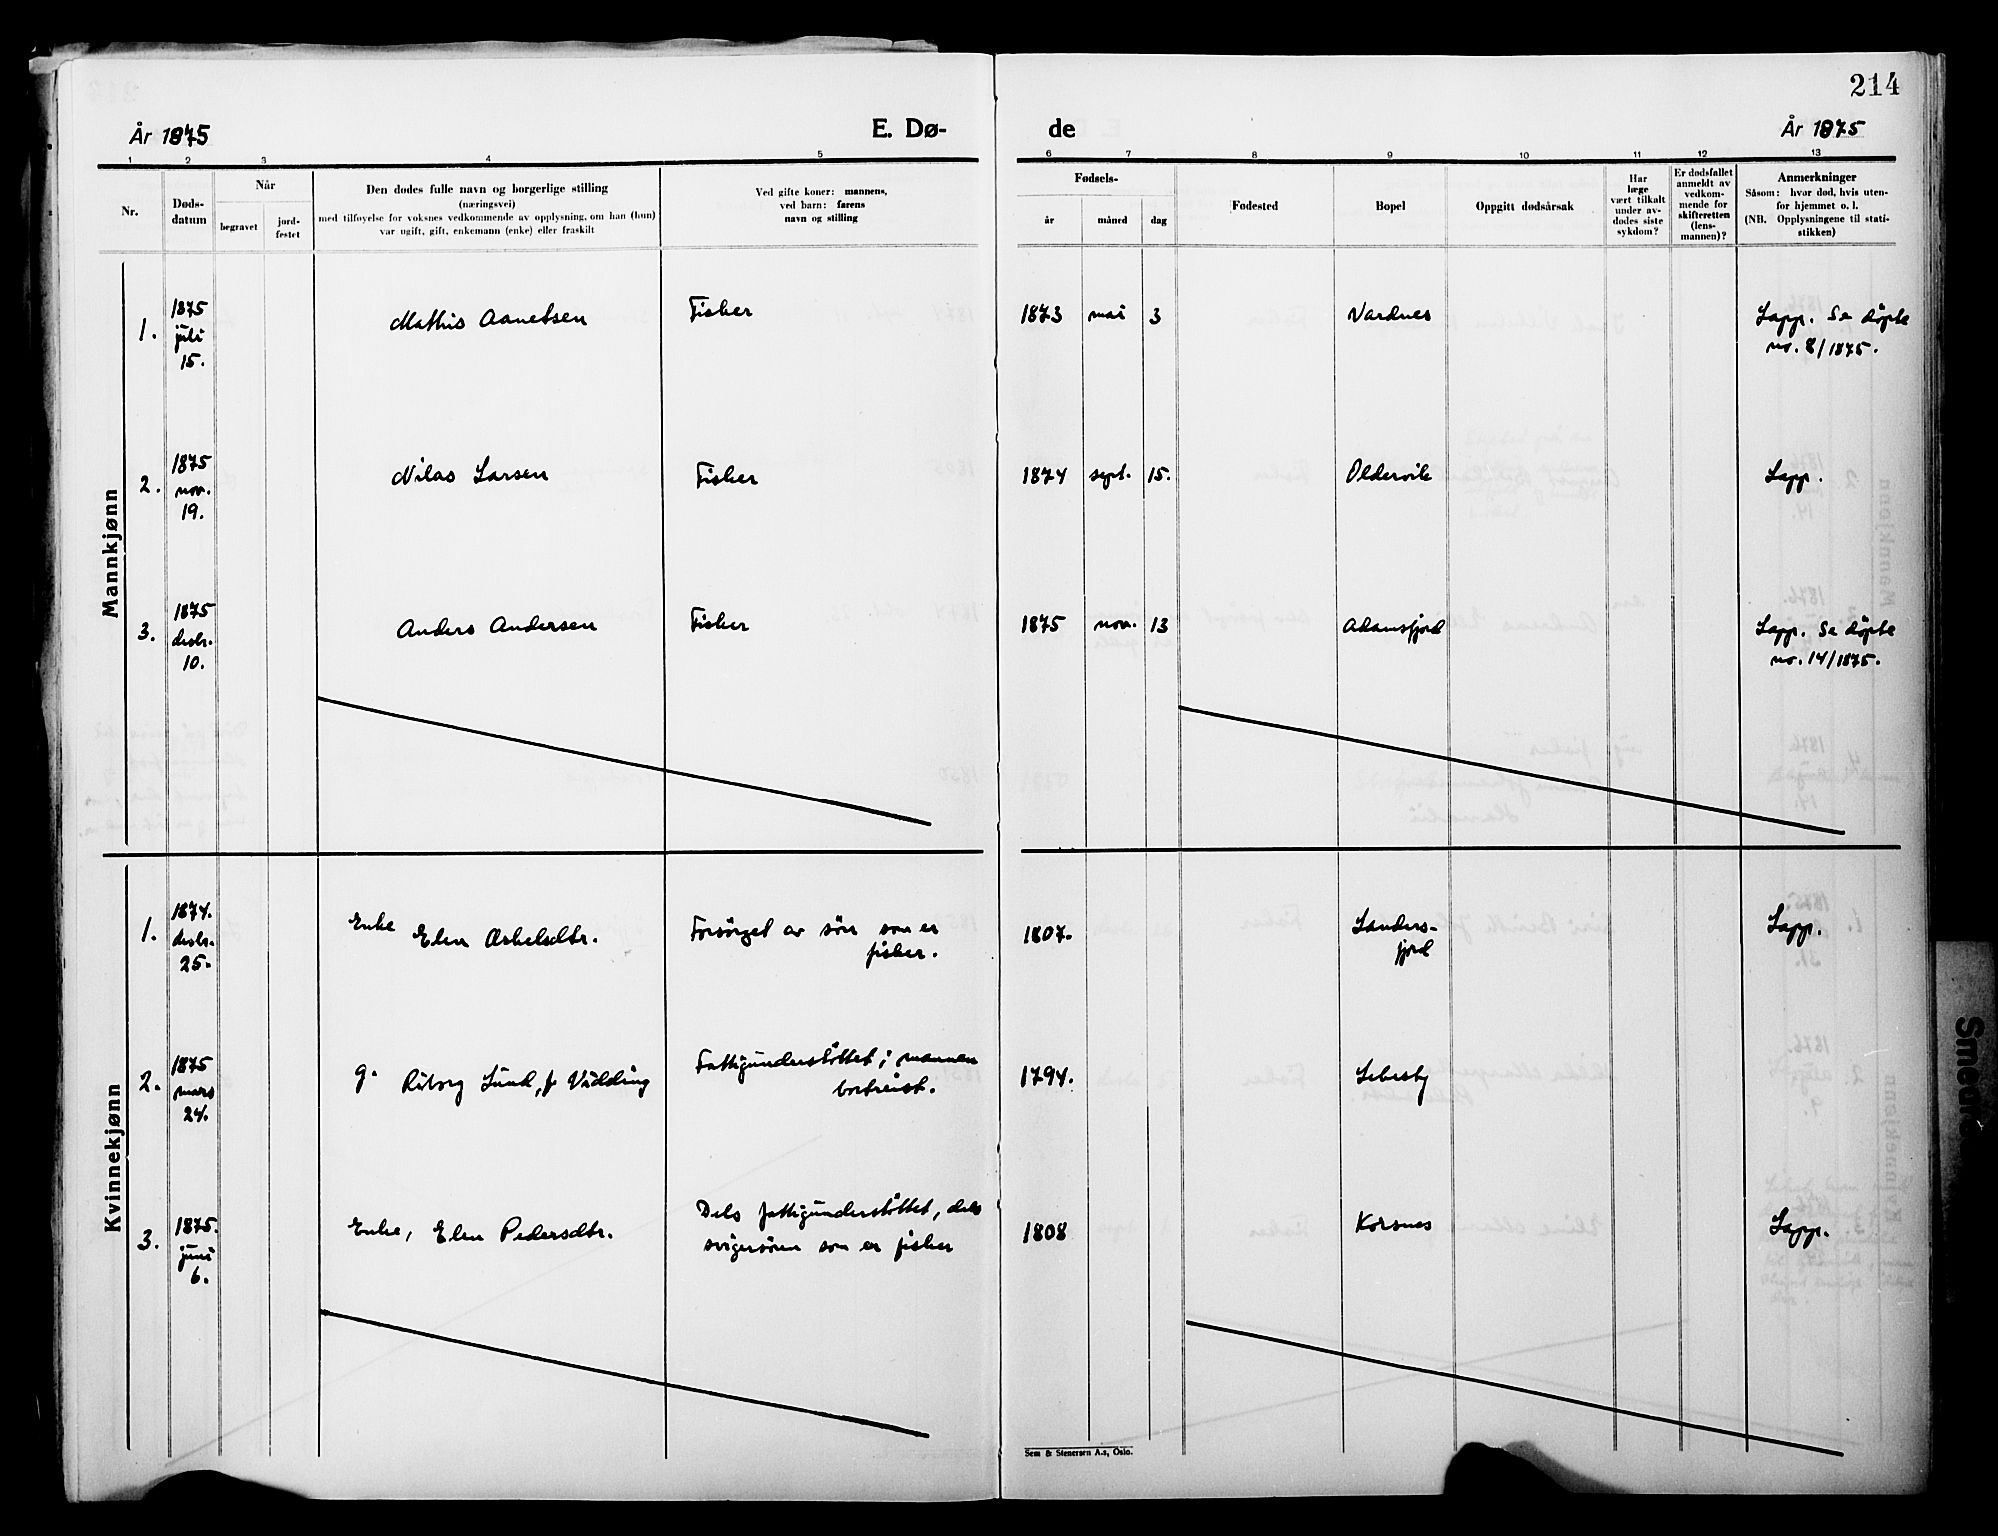 214
År 1875
E. Dø-
de
År 1875
1 2 3 4 5 6 7 8 9 10 11 12 13
Nr.
Døds-
datum
Når
begravet
jord-
festet
Den dødes fulle navn og borgerlige stilling
(næringsvei)
med tilføyelse for voksnes vedkommende av opplysning, om han (hun)
var ugift, gift, enkemann (enke) eller fraskilt
Ved gifte koner: mannens,
ved barn: farens
navn og stilling
Fødsels-
år
måned
dag
Fødested
Bopel
Oppgitt dødsårsak
Har
læge
vært tilkalt
under av-
dødes siste
sykdom?
Er dødsfallet
anmeldt av
vedkom-
mende for
skifteretten
(lens-
mannen)?
Anmerkninger
Såsom: hvor død, hvis uten-
for hjemmet o. l.
(NB. Opplysningene til stati-
stikken)
Mannkjønn
1.
1875
juli
15.
Mathis Aanetsen
Fisker
1873 mai 3
Vardnes
Lapp. Se døpte
no. 8/1875.
2.
1875
nov.
19.
Nilas Larsen
Fisker
1874 sept. 15.
Oldervik
Lapp.
3.
1875
desbr.
10.
Anders Andersen
Fisker
1875 nov. 13
Adamsfjord
Lapp. Se døpte
no. 14/1875.
Kvinnekjønn
1.
1874.
desbr.
25.
Enke Elen Askelsdtr.
Forsörget av sön som er
fisker.
1807.
Landers-
fjord
Lapp.
2.
1875
mars
24.
g. Lund, f.
Fattigunderstöttet; mannen
bortreist.
1794.
Lebesby
3.
1875.
juni
6.
Enke, Elen Pedersdtr.
Dels fattigunderstöttet, dels
svigersönn som er fisker
1808
Korsnes
Lapp.
Sem & Stenersen A.s, Oslo.